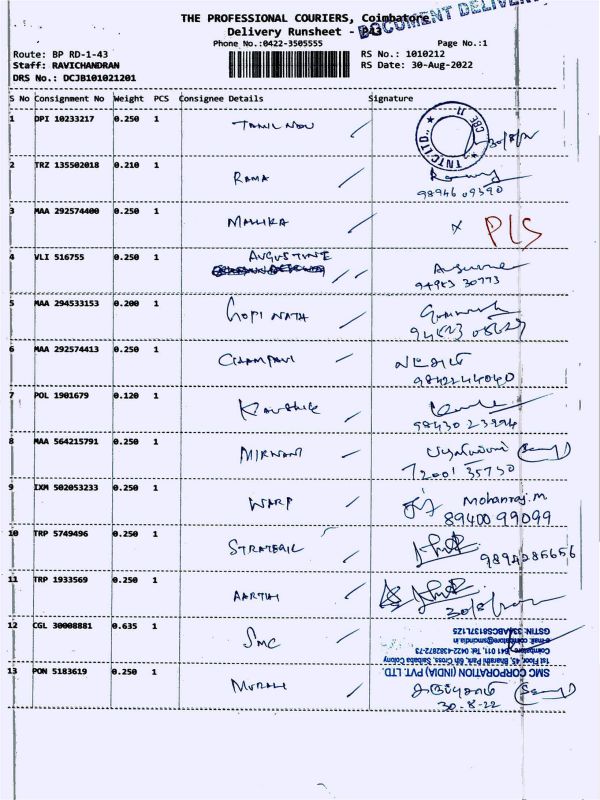 THE PROFESSIONAL COURIERS, Coimbatore
DOCUMENT DELIVERY
Delivery Runsheet - P43
Phone No.:0422-3505555
Page No.:1
Route: BP RD-1-43
RS No.: 1010212
Staff: RAVICHANDRAN
RS Date: 30-Aug-2022
DRS No.: DCJB101021201
S No Consignment No Weight PCS Consignee Details Signature
1 DPI 10233217 0.250 1 TAMIL NADU
TNTC LTD CBE 11 30/8/22
2 TRZ 135502018 0.210 1 RAMA
98946 09390
3 MAA 292574400 0.250 1 MALLIKA x PLS
4 VLI 516755 0.250 1 AUGUSTINE
94983 30773
5 MAA 294533153 0.200 1 GOPI NATH
6 MAA 292574413 0.250 1 CHAMPAVI
9842244040
7 POL 1901679 0.120 1 KAUSHIK
98430 23994
8 MAA 564215791 0.250 1 MIRNANI
72001 35750
9 IXM 502053233 0.250 1 WARP Mohanraj.m
89400 99099
10 TRP 5749496 0.250 1 STRATEGIC 9894285656
11 TRP 1933569 0.250 1 AARTHI
30/8/2022
12 CGL 30008881 0.635 1 SMC
SMC CORPORATION (INDIA) PVT. LTD.
1st Floor, 45, Bharathi Park, 6th Cross, Saibaba Colony
Coimbatore- 641 011, Tel: 0422-4382872-73
e.mail: coimbatore@smcindia.in
GSTIN: 33AABCS8137L1Z5
13 PON 5183619 0.250 1 MURALI
30-8-22